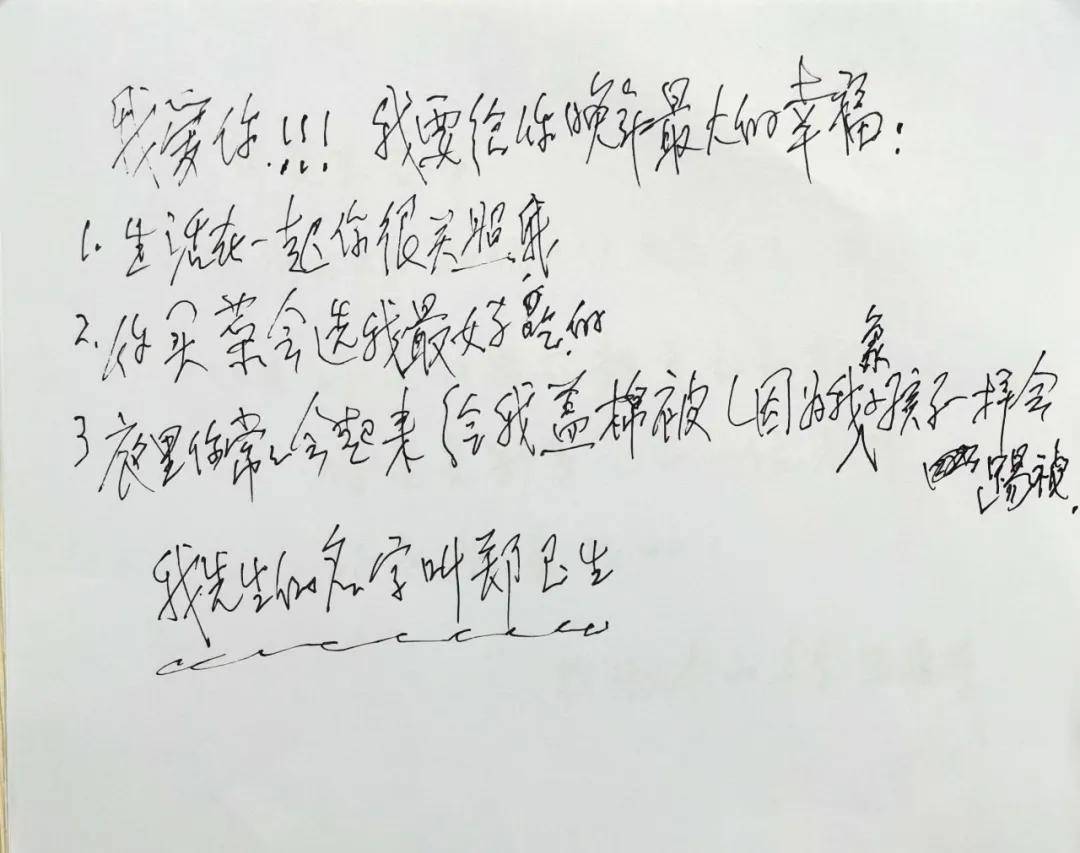 我爱你!!! 我要给你晚年最大的幸福:
1. 生活在一起你很关照我
2. 你买菜会选我最好吃的
3 夜里你常常会起来给我盖棉被(因为我象小孩子一样会踢被.
我先生的名字叫郑卫生